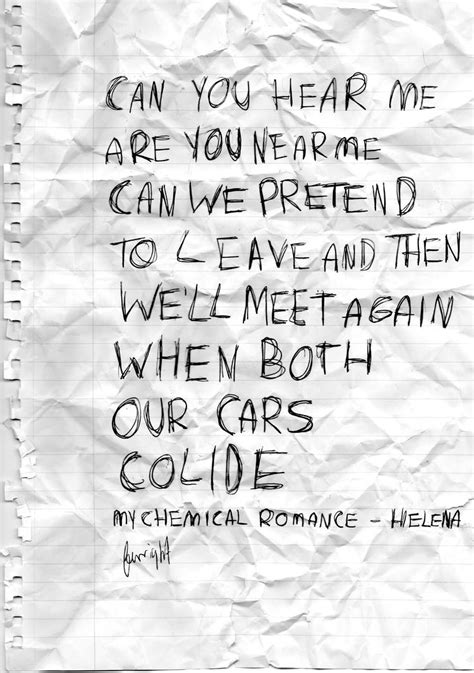 CAN YOU HEAR ME
ARE YOU NEAR ME
CAN WE PRETEND
TO LEAVE AND THEN
WE'LL MEET AGAIN
WHEN BOTH
OUR CARS
COLIDE
MY CHEMICAL ROMANCE - HELENA